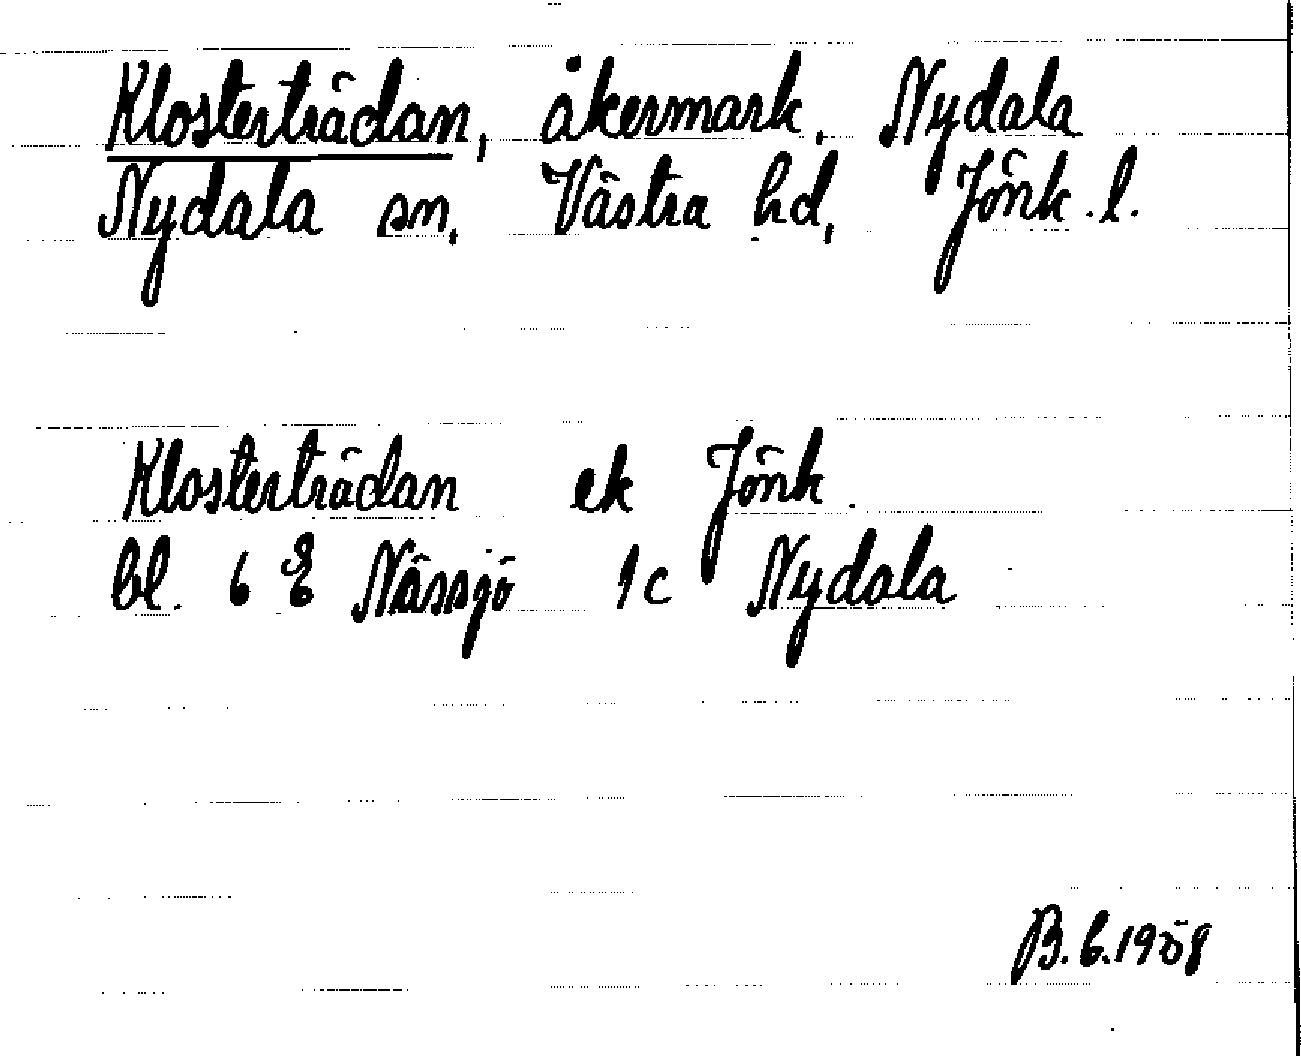 Klosterträdan, åkermark, Nydala
Nydala sn, Västra hd, Jönk. l.
Klosterträdan ek Jönk.
bl. 6 E Nässjö 1c Nydala
B.E.1958